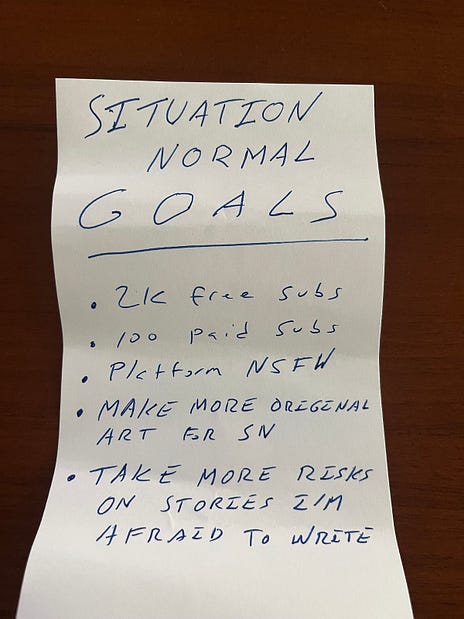 SITUATION
NORMAL
GOALS
• 2K free subs
• 100 paid subs
• Platform NSFW
• MAKE MORE ORIGINAL
ART FOR SN
• TAKE MORE RISKS
ON STORIES I'M
AFRAID TO WRITE